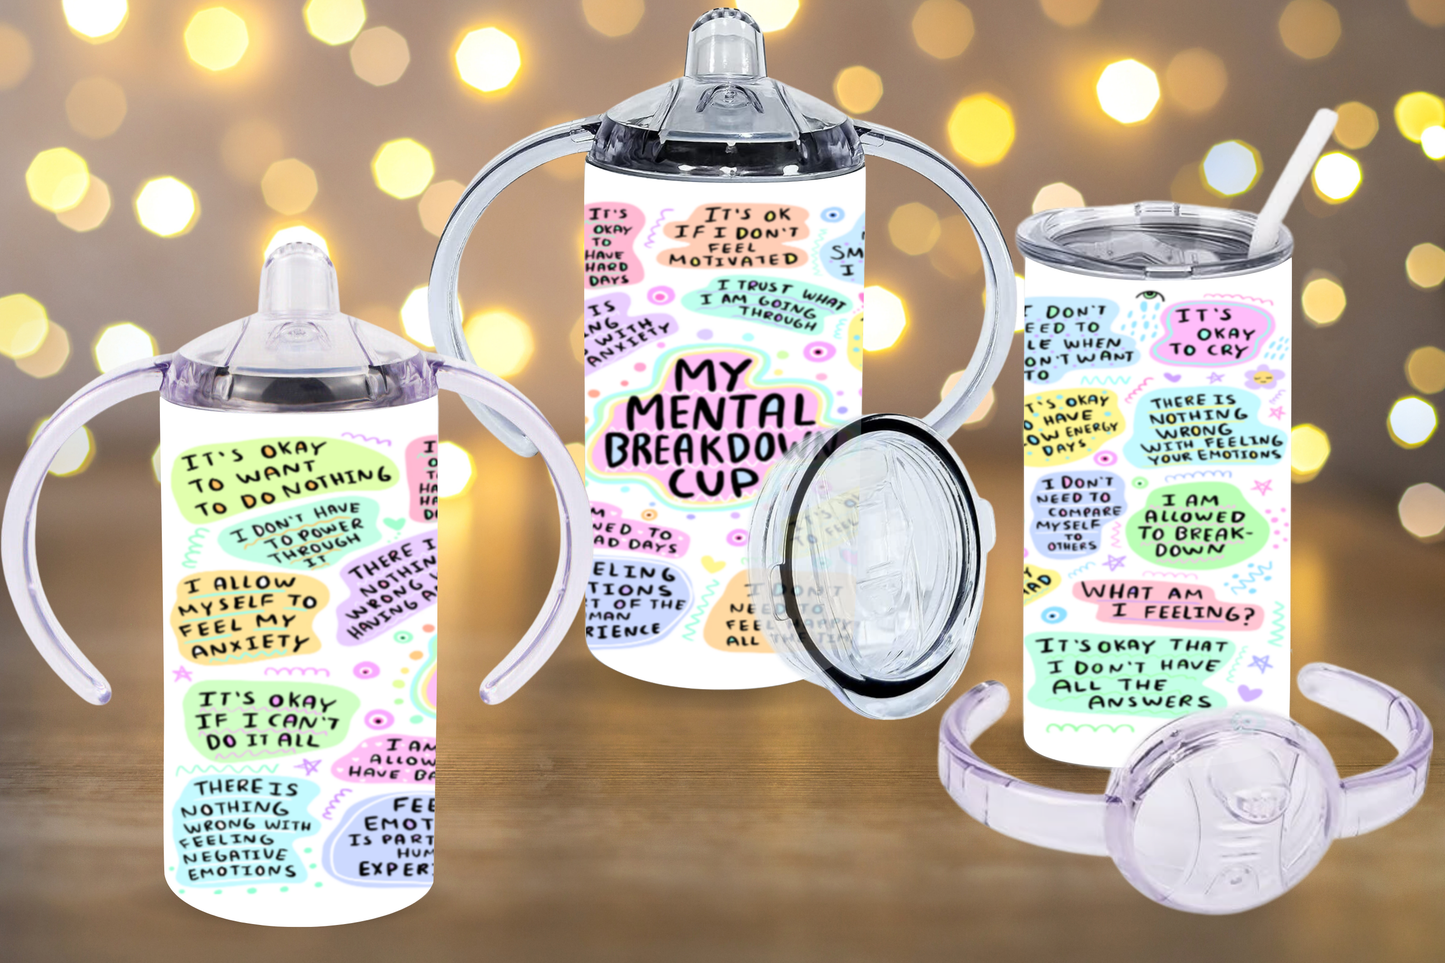 IT'S OKAY
TO WANT
TO DO NOTHING
I DON'T HAVE
TO POWER
THROUGH
IT
THERE I
NOTHIN
WRONG W
HAVING A
I ALLOW
MYSELF TO
FEEL MY
ANXIETY
IT'S OKAY
IF I CAN'T
DO IT ALL
I AM
ALLOW
HAVE BA
THERE IS
NOTHING
WRONG WITH
FEELING
NEGATIVE
EMOTIONS
FEE
EMOT
IS PART
HUM
EXPERI
IT'S
OKAY
TO
HAVE
HARD
DAYS
IT'S OK
IF I DON'T
FEEL
MOTIVATED
SM
I
I TRUST WHAT
I AM GOING
THROUGH
IS
NG
WITH
ANXIETY
MY
MENTAL
BREAKDOWN
CUP
M
WED TO
AD DAYS
ELING
TIONS
T OF THE
MAN
RIENCE
I DON'T
NEED TO
FEEL HAPPY
ALL THE TIM
I DON'T
EED TO
LE WHEN
ON'T WANT
TO
IT'S
OKAY
TO CRY
T'S OKAY
O HAVE
OW ENERGY
DAYS
THERE IS
NOTHING
WRONG
WITH FEELING
YOUR EMOTIONS
I DON'T
NEED TO
COMPARE
MYSELF
TO
OTHERS
I AM
ALLOWED
TO BREAK-
DOWN
WHAT AM
I FEELING?
IT'S OKAY THAT
I DON'T HAVE
ALL THE
ANSWERS